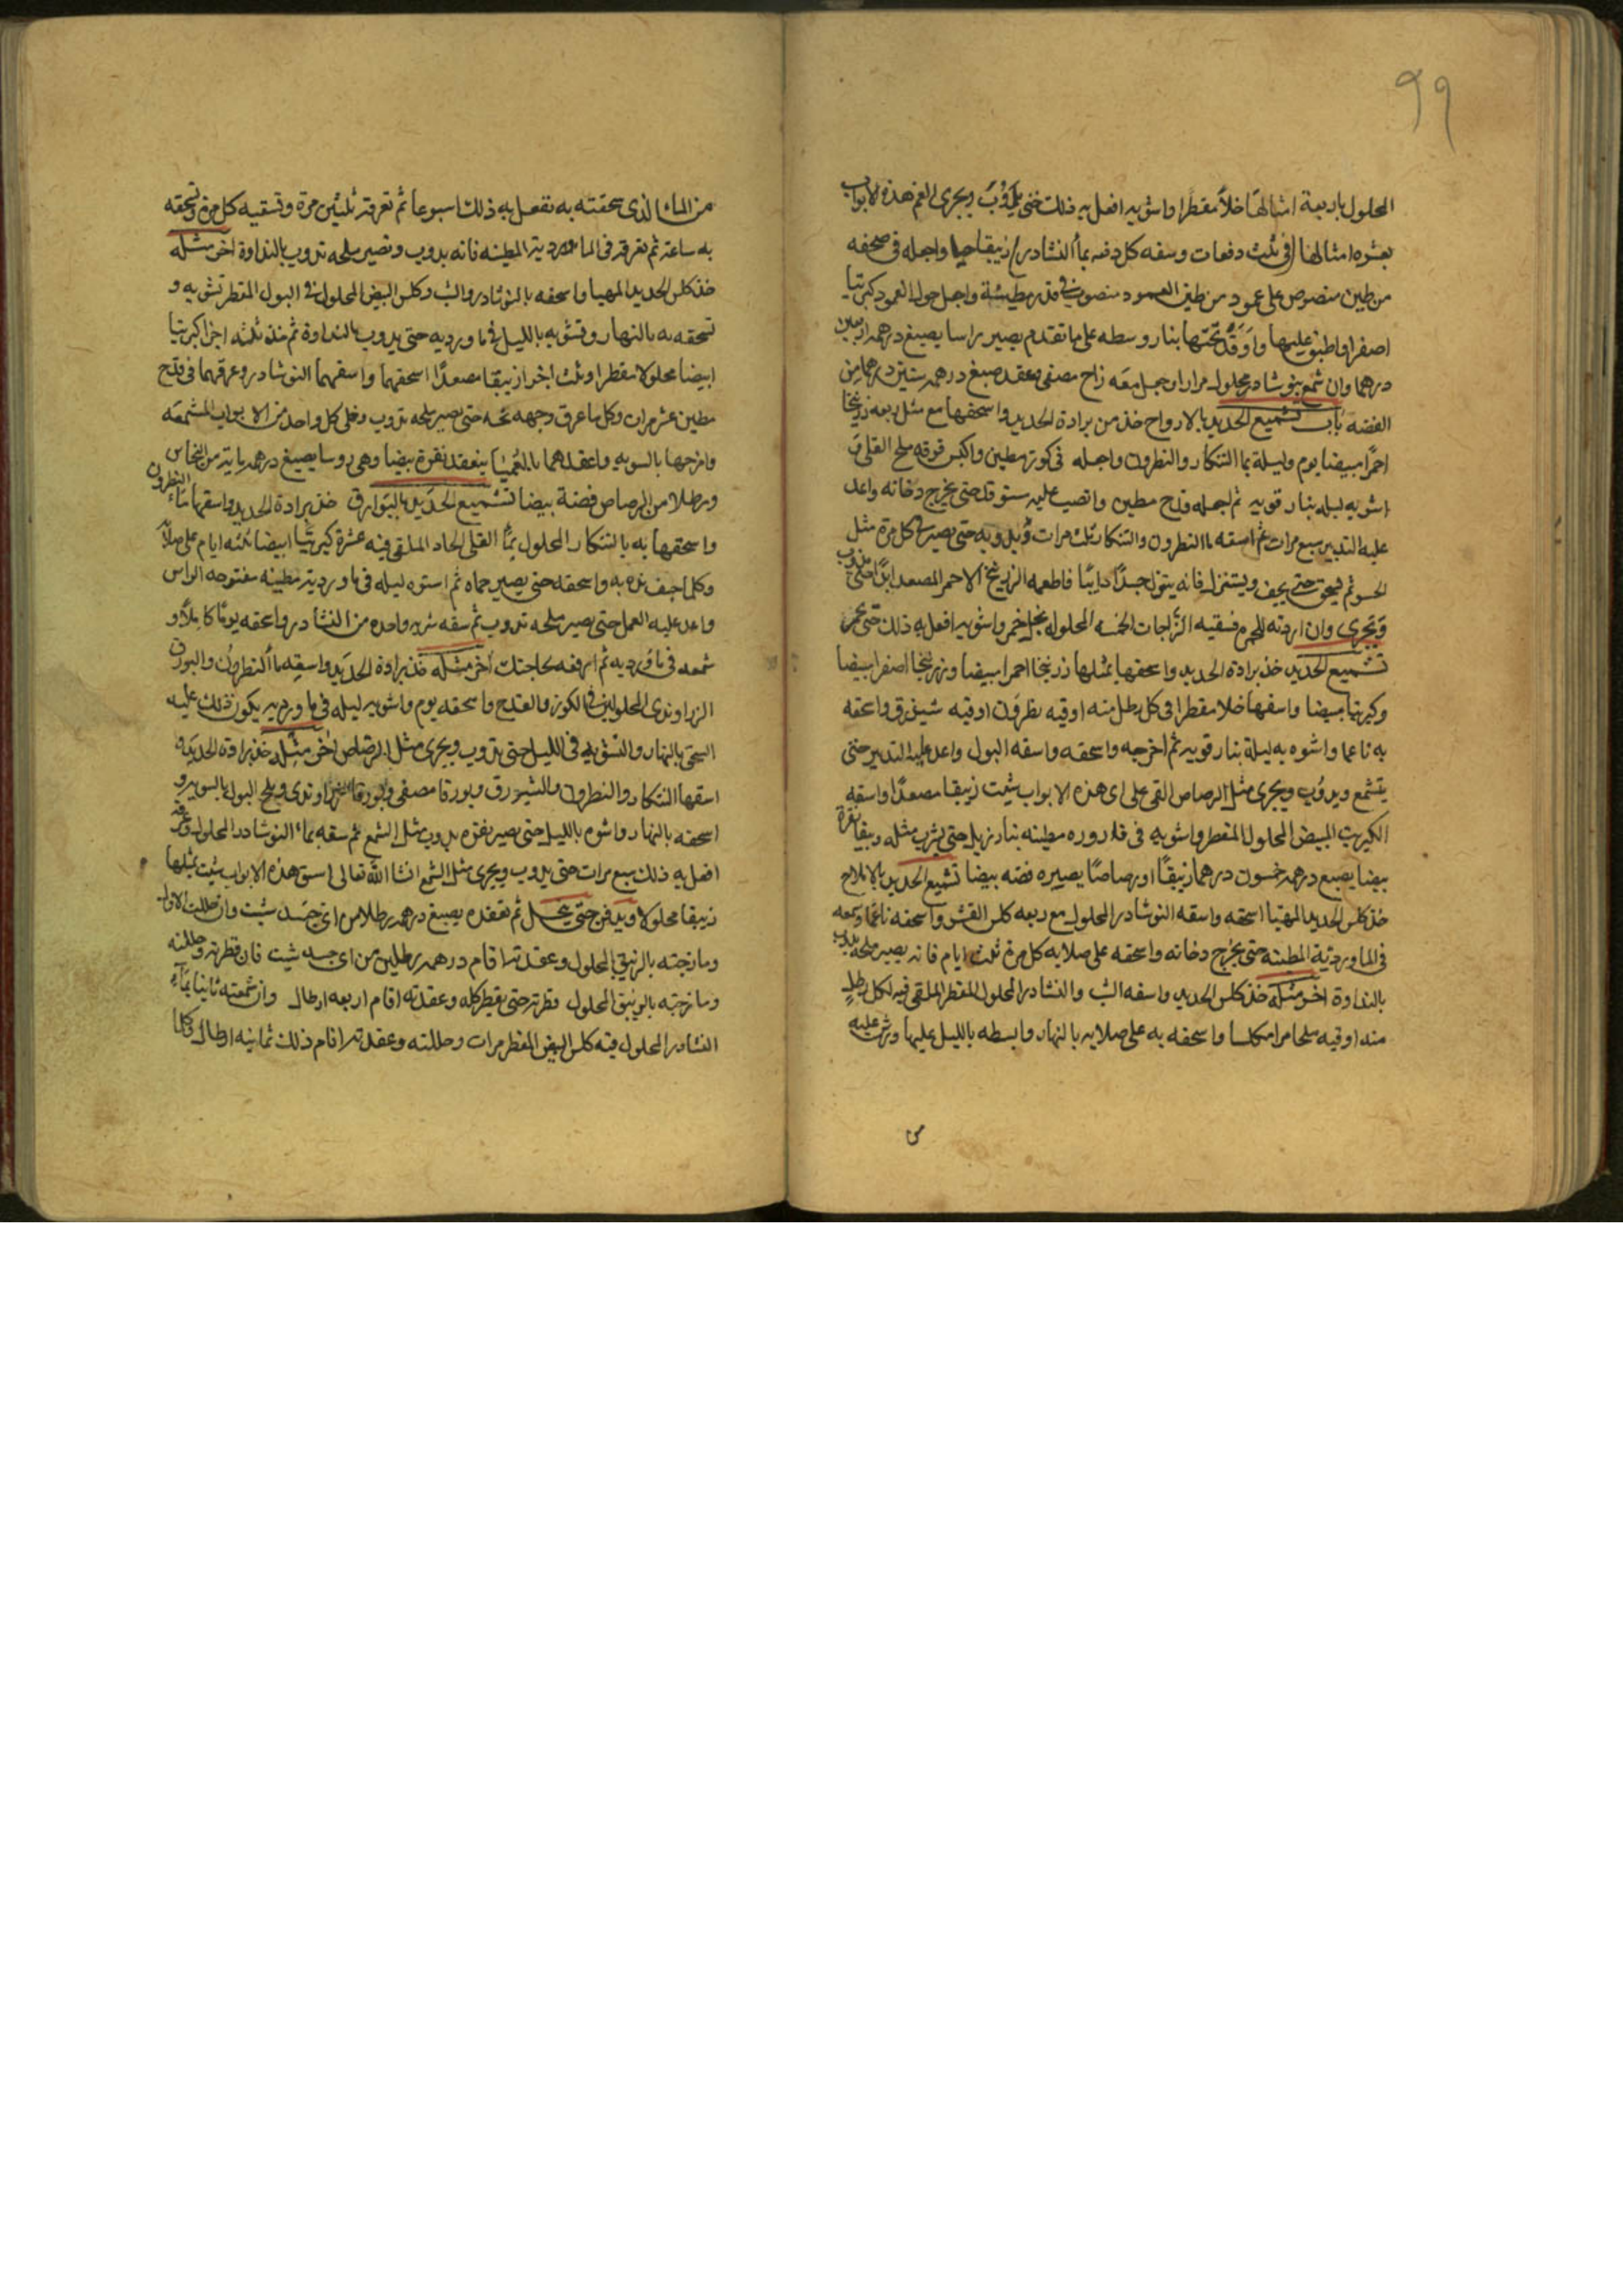 99
المحلول باربعة امثالها خلا مقطرا واشويه افعل به ذلك حتى يذوب ويجرى القم هذه الابواب
بعشره امثالها فى ثلث دفعات وسقه كل دفعه بماء النشادر زيبقا حيا واجعله فى صحفه
من طين منصوص على عمود من طين العمود منصوب فى قدر مطينة واجعل حول العمود كبريتا
اصفرا واطبق عليها واوقد تحتها بنار وسطه على ما تقدم يصير راسا يصبغ درهمه اربعين
درهما وان شمع بنوشادر محلول مرارا وجعل معه زاج مصفى وعقد صبغ درهمه ستين درهما من
الفضه باب تشميع الحديد بالارواح خذ من برادة الحديد واسحقها مع مثل ربعه زرنيخا
احمرا مبيضا يوم وليلة بما التنكار والنطرون واجعله فى كوز مطين واكبس فوقه ملح القلى و
اشويه ليله بنار قويه ثم اجعله قدح مطين وانصب عليه ستوقد حتى يخرج دخانه واعد
عليه التدبير سبع مرات ثم اسقه ما النطرون والتنكار ثلث مرات وبل وبه حتى يصير فى كل مرة مثل
الحسو ثم حتى يجف ويستنزل فانه ينزل جسدا دايبا فاطعمه الزرنيخ الاحمر المصعد ابدا حتى يذوب
ويجرى وان اردته للحمره فسقيه الزاجات الخمسه المحلوله بخل خمر واشويه افعل به ذلك حتى يجر
تشميع الحديد خذ برادة الحديد واسحقها بمثلها زرنيخا احمرا مبيضا وزرنيخا اصفرا مبيضا
وكبريتا مبيضا واسقها خلا مقطرا فى كل رطل منه اوقيه نطرون اوقيه شيزرق واسحقه
به ناعما واشوه به ليلة بنار قويه ثم اخرجه واسحقه واسقه البول واعد عليه التدبير حتى
يتشمع ويذوب ويجرى مثل الرصاص القى على اى هذه الابواب شيت زيبقا مصعدا واسقه
الكبريت المبيض المحلول المقطر واشويه فى قاروره مطينه بنار زبل حتى يشرب مثله ويبقا نقرة
بيضا يصبغ درهمه خمسون درهما زيبقا او رصاصا يصيره فضه بيضا تشميع الحديد بالاملاح
خذ كلس الحديد المهيا اسحقه واسقه النوشادر المحلول مع ربعه كلس القشر واسحقه ناعما وشمعه
فى الماورديه المطينه حتى يخرج دخانه واسحقه على صلايه كل مرة ثلث ايام فانه يصير ملحه يذوب
بالنداوة اخر مثله خذ كلس الحديد واسقه الشب والنشادر المحلول المقطر الملقى فيه لكل رطل
منه اوقيه ملحا مرا مكلسا واسحقه به على صلايه بالنهار وابسطه بالليل عليها ورش عليه
من
من الماء الذى سحقته به تفعل به ذلك اسبوعا ثم تعرقه ثلثين مرة وتسقيه كل مرة وتسحقه
به ساعة ثم تغرقه فى الماورديه المطينه فانه يذوب وتصير ملحه تذوب بالنداوة اخر مثله
خذ كلس الحديد المهيا واسحقه بالنوشادر والشب وكلس البيض المحلول فى البول المقطر تشويه و
تسحقه به بالنهار وتشويه بالليل فى ماورديه حتى يذوب بالنداوة ثم خذ ثلثه اجزا كبريتا
ابيضا محلولا مقطرا وثلث اجزا زيبقا مصعدا اسحقهما واسقهما النوشادر وعرقهما فى قدح
مطين عشر مرات وكل ما عرق وجهه تحته حتى يصير ملحه تذوب وخلى كل واحد من الابواب المشمعه
وامزجها بالسويه واعقدهما بالعميا ينعقد نقرة بيضا وهى روسا يصبغ درهمه ماية من النحاس
ورطلا من الرصاص فضة بيضا تشميع الحديد بالبوارق خذ برادة الحديد واسقها ماء النطرون
واسحقها به بالتنكار المحلول بماء القلى الحاد الملقى فيه عشرة كبريتا ابيضا ثلثه ايام على صلاية
وكلما جف نده به واسحقه حتى يصير حماه ثم اشوه ليله فى ماورديه مطينه مفتوحه الراس
واعد عليه العمل حتى يصير ملحه تذوب ثم سقه شربه واحده من النشادر واسحقه يوما كاملا و
شمعه فى ماورديه ثم ارفعه لحاجتك اخر مثله خذ برادة الحديد واسقه ما النطرون والبورق
الزراوندى المحلولين فى الكوز والقدح واسحقه يوم واشويه ليله فى ماورديه يكون ذلك عليه
السحق بالنهار والتشويه فى الليل حتى يذوب ويجرى مثل الرصاص اخر مثله خذ برادة الحديد و
اسقها التنكار والنطرون والشيزرق وبورقا مصفى وبورقا زراوندى وملح البول بالسويه و
اسحقه بالنهار واشوه بالليل حتى يصير نقره يذوب مثل الشمع ثم سقه بماء النوشادر المحلول
افعل به ذلك سبع مرات حتى يذوب ويجرى مثل الشمع انشا الله تعالى اسق هذه الابواب شيت بمثلها
زيبقا محلولا ويدفن حتى ينحل ثم تعقده يصبغ درهمه رطلا من اى جسد شيت وان حللت الاول
وما زجته بالزيبق المحلول وعقدته اقام درهمه رطلين من اى جسد شيت فان قطرته وحللته
ومازجته بالزيبق المحلول وقطرته حتى يقطر كله وعقدته اقام اربعه ارطال وان شمعته ثانيا بماء
النشادر المحلول فيه كلس البيض المقطر مرات وحللته وعقدته اقام ذلك ثمانيه ارطال وكلما